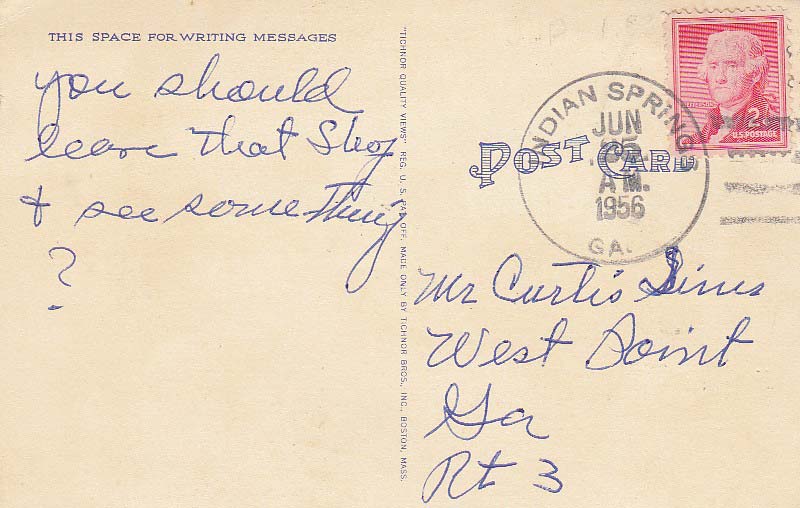 THIS SPACE FOR WRITING MESSAGES
you should
leave that Shop
& see something
?
"TICHNOR QUALITY VIEWS" REG. U. S. PAT. OFF. MADE ONLY BY TICHNOR BROS., INC., BOSTON, MASS.
POST CARD
INDIAN SPRINGS
JUN
A.M.
1956
GA.
JEFFERSON
2¢
U.S. POSTAGE
Mr Curtis
West Point
Ga
Rt 3